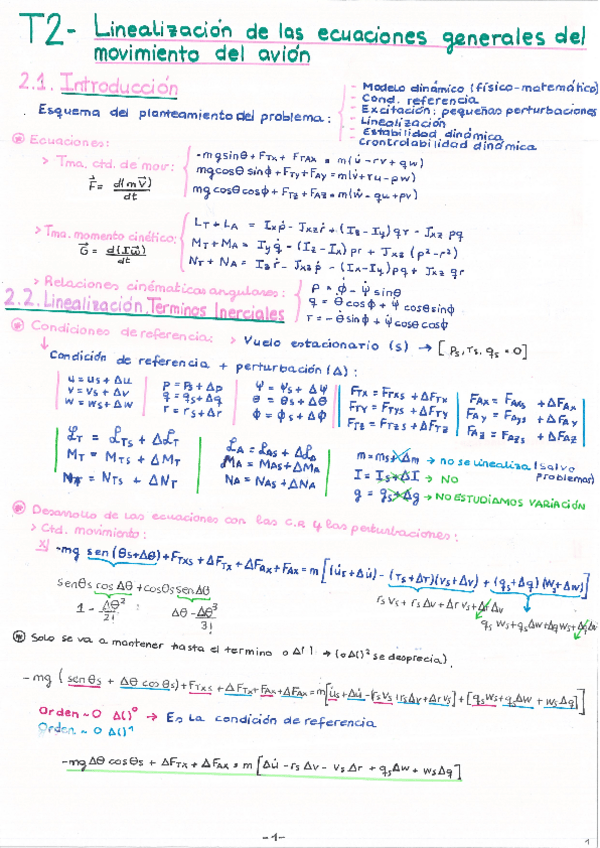 T2- Linealización de las ecuaciones generales del
movimiento del avión
2.1. Introducción
. Esquema del planteamiento del problema:
- Modelo dinámico (físico-matemático)
- Cond. referencia
- Excitación: pequeñas perturbaciones
- Linealización
- Estabilidad dinámica
- Crontrolabilidad dinámica
* Ecuaciones:
> Tma. ctd. de mov:
F⃗ = d(mV⃗)/dt
-mg sinθ + F_Tx + F_TAx = m(u̇ - rv + qw)
mg cosθ sinϕ + F_Ty + F_Ay = m(v̇ + ru - pw)
mg cosθ cosϕ + F_Tz + F_Az = m(ẇ - qu + pv)
> Tma. momento cinético:
G⃗ = d(Iω⃗)/dt
L_T + L_A = I_x ṗ - J_xz ṙ + (I_z - I_y) qr - J_xz pq
M_T + M_A = I_y q̇ - (I_z - I_x) pr + J_xz (p² - r²)
N_T + N_A = I_z ṙ - J_xz ṗ - (I_x - I_y) pq + J_xz qr
> Relaciones cinématicas angulares:
p = ϕ̇ - ψ̇ sinθ
q = θ̇ cosϕ + ψ̇ cosθ sinϕ
r = -θ̇ sinϕ + ψ̇ cosθ cosϕ
2.2. Linealización, Terminos Inerciales
* Condiciones de referencia: > Vuelo estacionario (s) → [p_s, r_s, q_s = 0]
↓
Condición de referencia + perturbación (Δ):
u = u_s + Δu
v = v_s + Δv
w = w_s + Δw
p = p_s + Δp
q = q_s + Δq
r = r_s + Δr
ψ = ψ_s + Δψ
θ = θ_s + Δθ
ϕ = ϕ_s + Δϕ
F_Tx = F_Txs + ΔF_Tx
F_Ty = F_Tys + ΔF_Ty
F_Tz = F_Tzs + ΔF_Tz
F_Ax = F_Axs + ΔF_Ax
F_Ay = F_Ays + ΔF_Ay
F_Az = F_Azs + ΔF_Az
L_T = L_Ts + ΔL_T
M_T = M_Ts + ΔM_T
N_T = N_Ts + ΔN_T
L_A = L_As + ΔL_A
M_A = M_As + ΔM_A
N_A = N_As + ΔN_A
m = m_s + Δm → no se linealiza (salvo problemas)
I = I_s + ΔI → NO
g = g_s + Δg → NO ESTUDIAMOS VARIACIÓN
* Desarrollo de las ecuaciones con las C.R y las perturbaciones:
> Ctd. movimiento:
x) -mg sen(θ_s + Δθ) + F_Txs + ΔF_Tx + ΔF_Ax + F_Ax = m[(u̇_s + Δu̇) - (r_s + Δr)(v_s + Δv) + (q_s + Δq)(w_s + Δw)]
senθ_s cosΔθ + cosθ_s senΔθ
1 - Δθ²/2! : Δθ - Δθ³/3!
r_s v_s + r_s Δv + Δr v_s + ΔrΔv
q_s w_s + q_s Δw + Δq w_s + ΔqΔw
* Solo se va a mantener hasta el termino o Δ()¹ → (o Δ()² se desprecia).
-mg (senθ_s + Δθ cosθ_s) + F_Txs + ΔF_Tx + F_Ax + ΔF_Ax = m[u̇_s + Δu̇ - (r_s v_s + r_s Δv + Δr v_s) + [q_s w_s + q_s Δw + w_s Δq]]
Orden ~ O Δ()⁰ → Es la condición de referencia
Orden ~ O Δ()¹
-mg Δθ cosθ_s + ΔF_Tx + ΔF_Ax = m[Δu̇ - r_s Δv - v_s Δr + q_s Δw + w_s Δq]
-1-
1